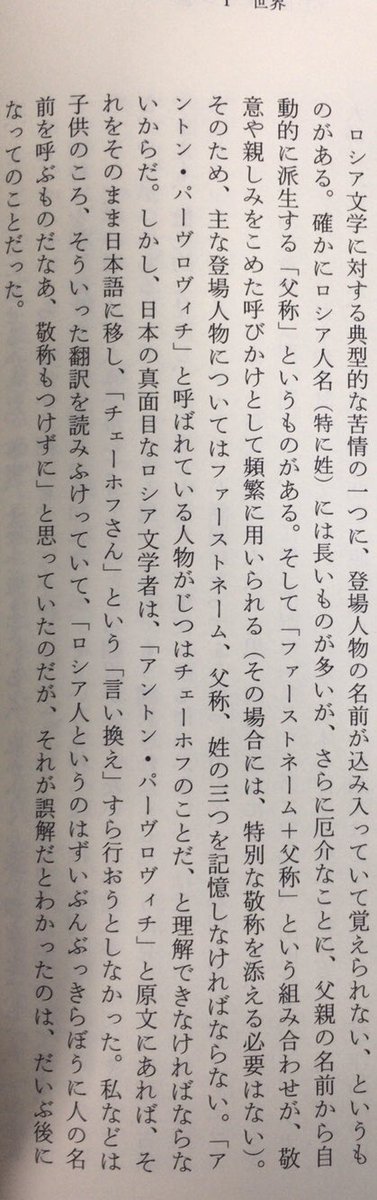 1 世界
ロシア文学に対する典型的な苦情の一つに、登場人物の名前が込み入っていて覚えられない、というも
のがある。確かにロシア人名（特に姓）には長いものが多いが、さらに厄介なことに、父親の名前から自
動的に派生する「父称」というものがある。そして「ファーストネーム＋父称」という組み合わせが、敬
意や親しみをこめた呼びかけとして頻繁に用いられる（その場合には、特別な敬称を添える必要はない）。
そのため、主な登場人物についてはファーストネーム、父称、姓の三つを記憶しなければならない。「ア
ントン・パーヴロヴィチ」と呼ばれている人物がじつはチェーホフのことだ、と理解できなければならな
いからだ。しかし、日本の真面目なロシア文学者は、「アントン・パーヴロヴィチ」と原文にあれば、そ
れをそのまま日本語に移し、「チェーホフさん」という「言い換え」すら行おうとしなかった。私などは
子供のころ、そういった翻訳を読みふけっていて、「ロシア人というのはずいぶんぶっきらぼうに人の名
前を呼ぶものだなあ、敬称もつけずに」と思っていたのだが、それが誤解だとわかったのは、だいぶ後に
なってのことだった。